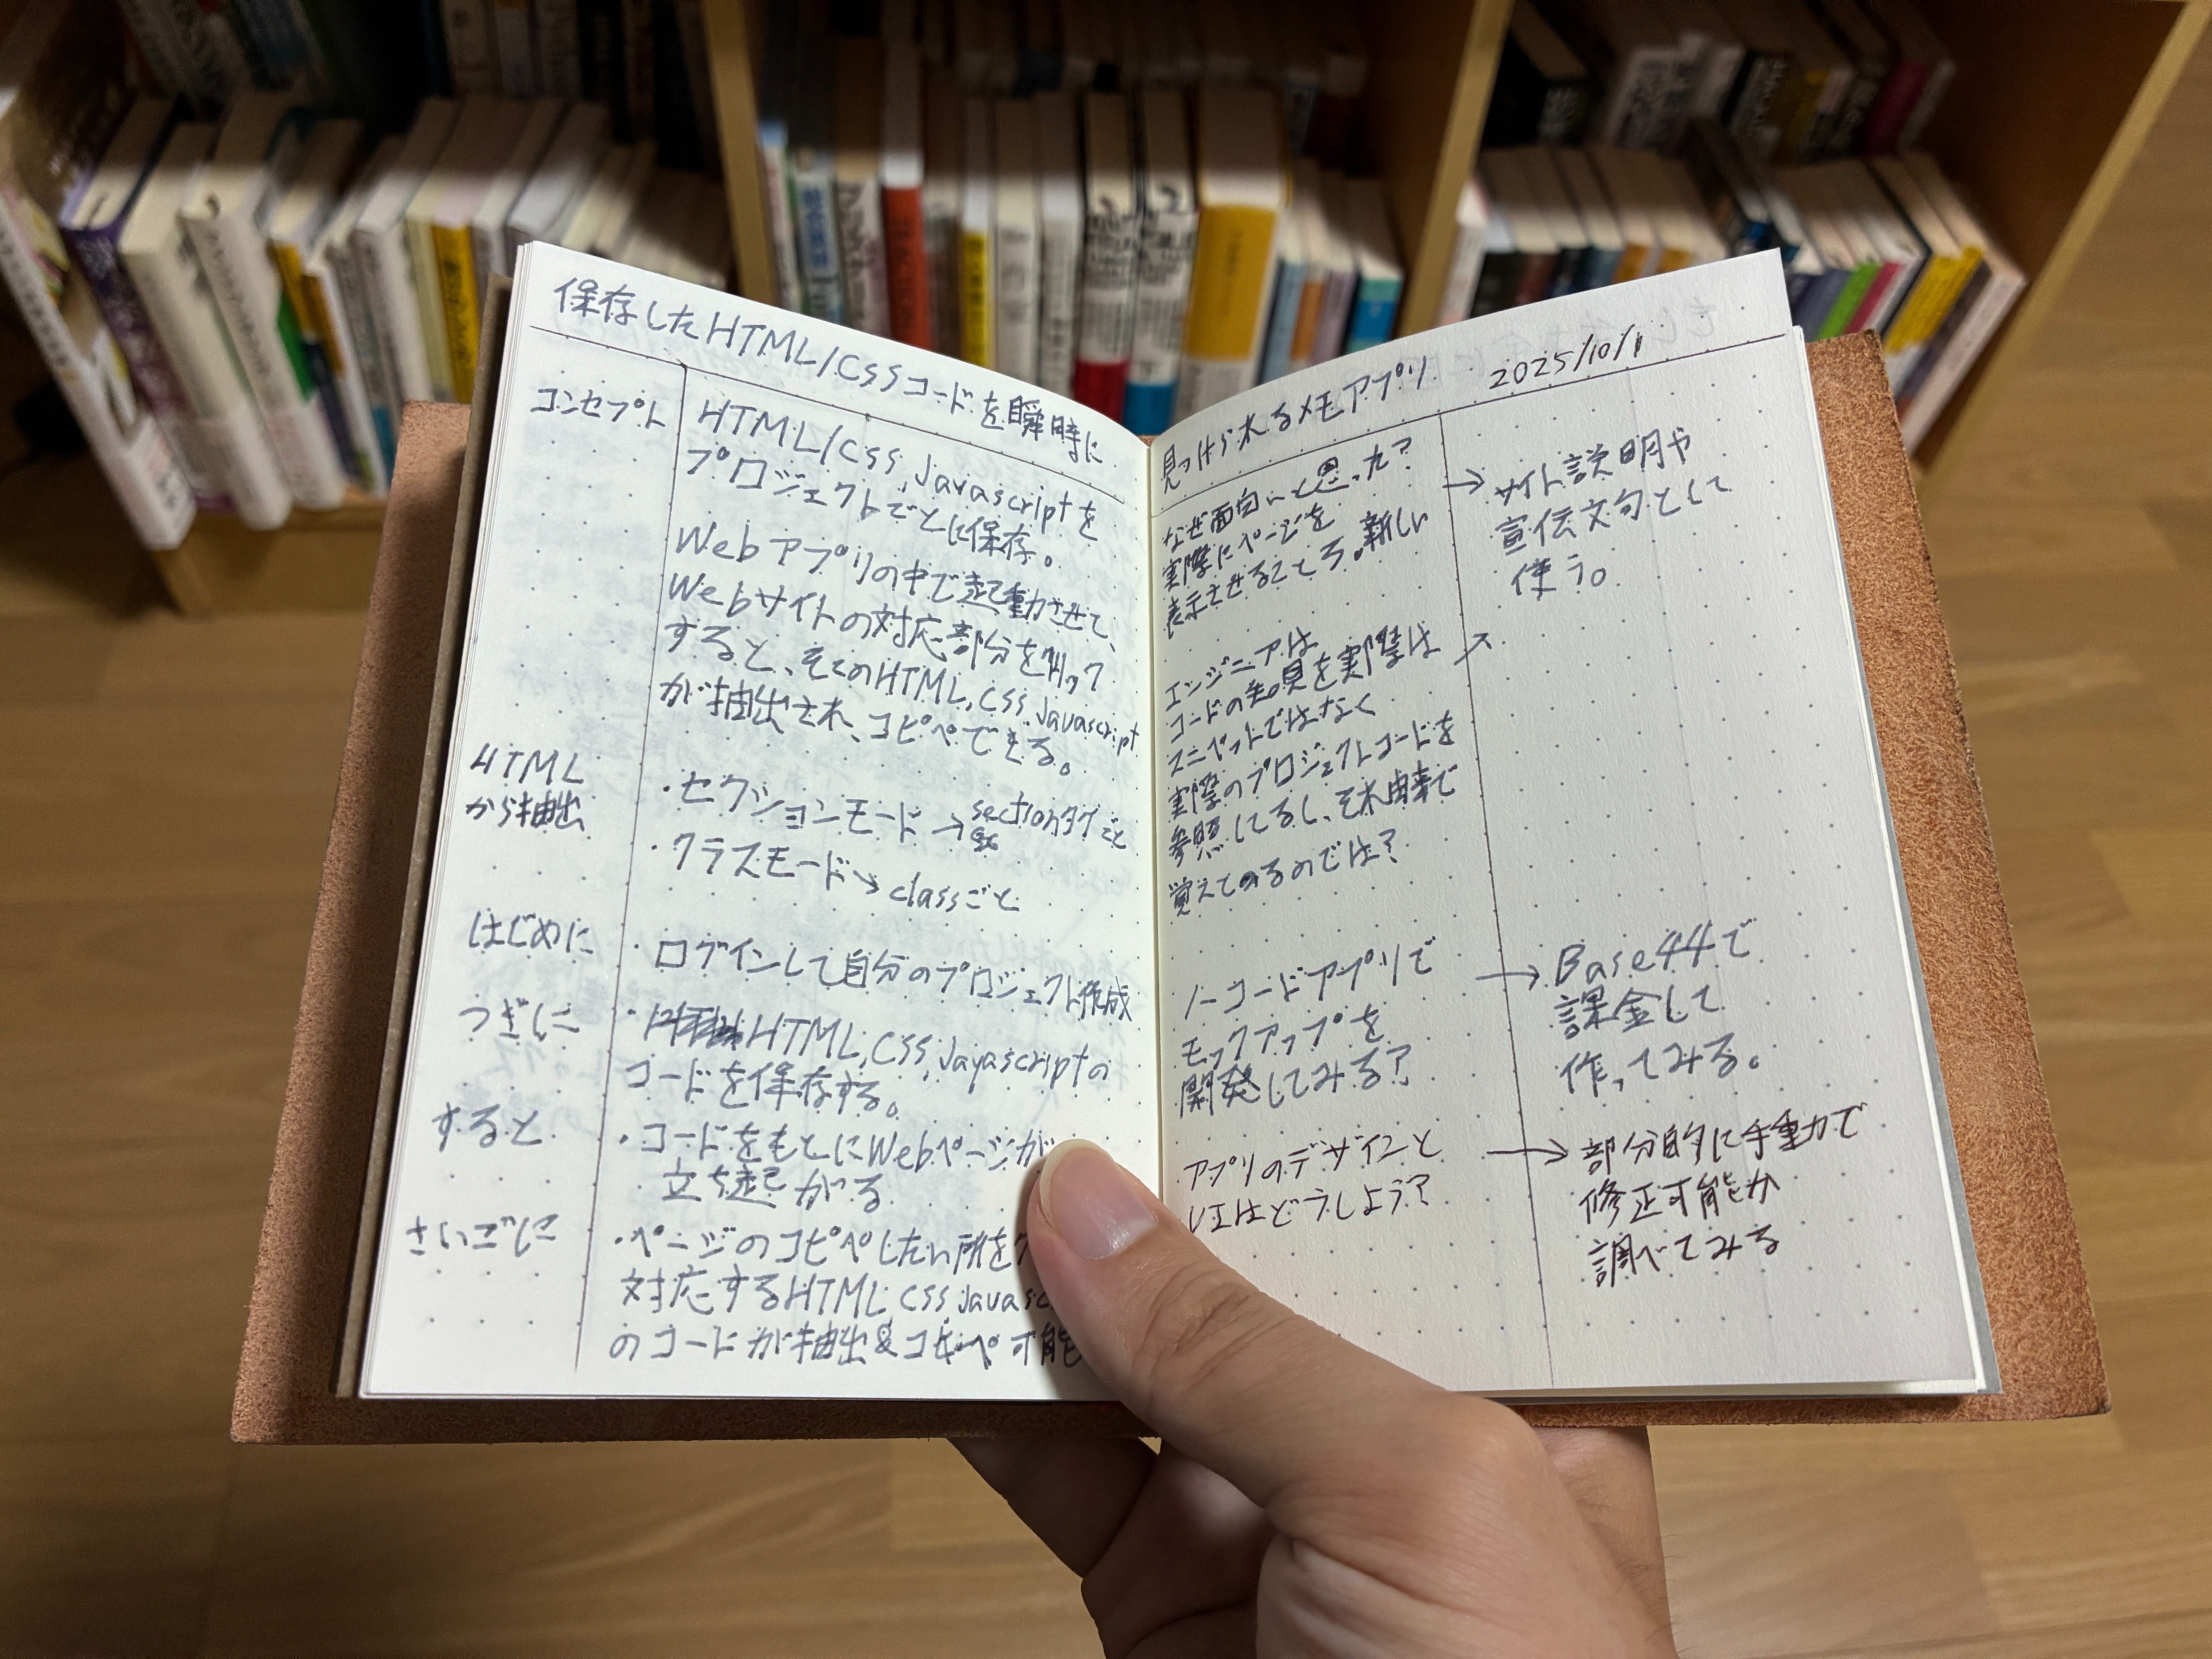 保存したHTML/CSSコードを瞬時に
見つけられるメモアプリ 2025/10/1
コンセプト
HTML/CSS, Javascriptを
プロジェクトごとに保存。
Webアプリの中で起動させて、
Webサイトの対応部分をクリック
すると、そこのHTML, CSS, Javascript
が抽出され、コピペできる。
HTML
から抽出
・セクションモード → sectionタグごと
・クラスモード → classごと
はじめに
・ログインして自分のプロジェクト作成
つぎに
・HTML, CSS, Javascriptの
コードを保存する。
すると
・コードをもとにWebページが
立ち起がる
さいごに
・ページのコピペしたい所を
対応するHTML CSS Javasc
のコードが抽出&コピペ可能
なぜ面白いと思った?
実際にページを
表示させるところ。新しい
→ サイト説明や
宣伝文句として
使う。
エンジニアは
コードの知見を実際は
スニペットではなく
実際のプロジェクトコードを
参照してるし、それ由来で
覚えてるのでは?
ノーコードアプリで
モックアップを
開発してみる?
→ Base44で
課金して
作ってみる。
アプリのデザインと
UIはどうしよう?
→ 部分的に手動で
修正可能か
調べてみる